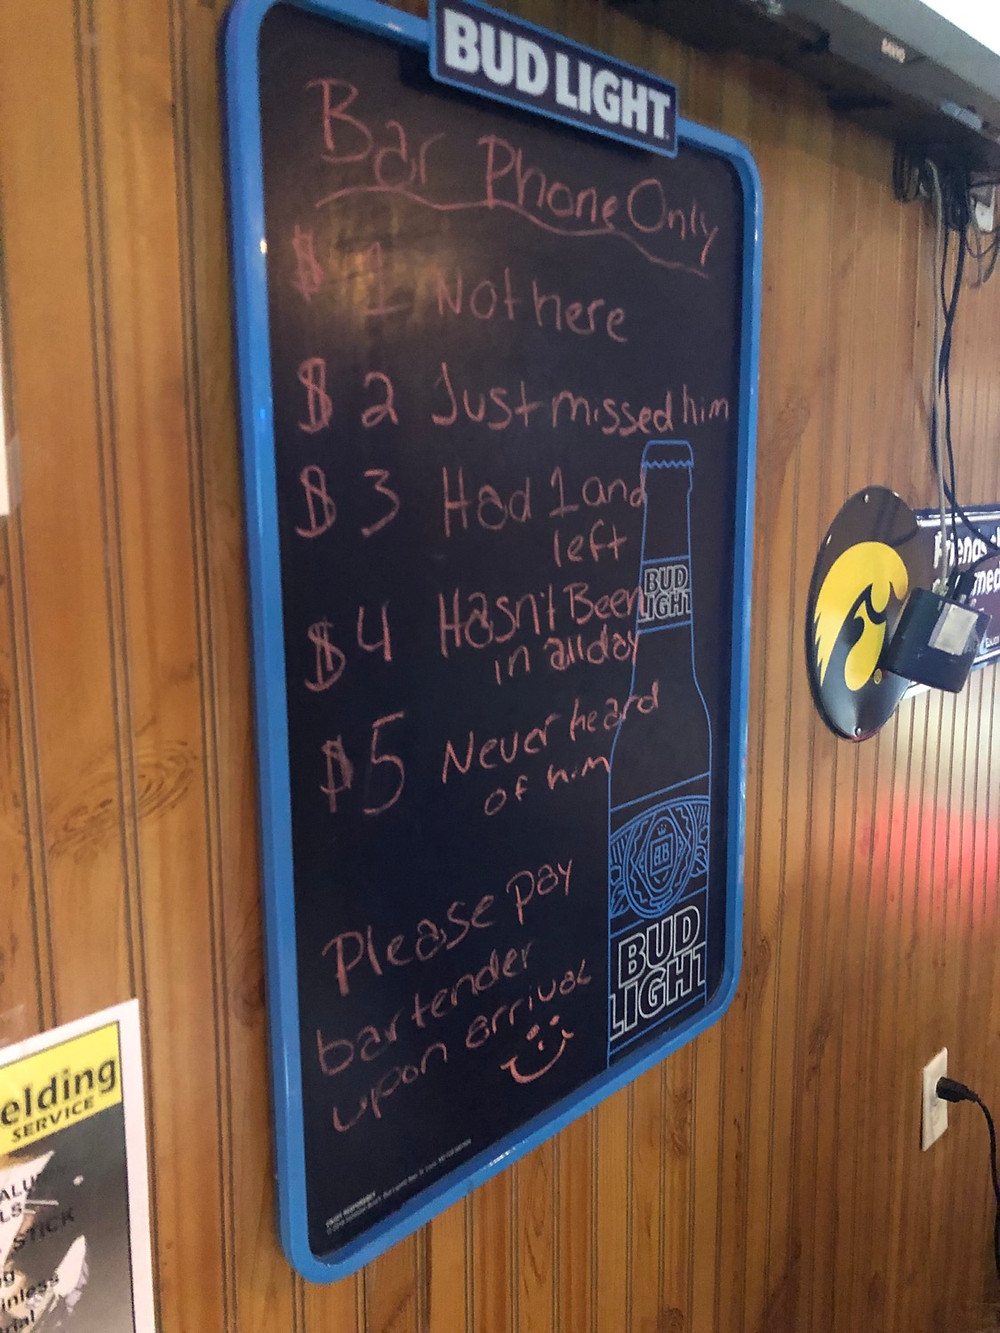 BUD LIGHT
Bar Phone Only
$1 Not here
$2 Just missed him
$3 Had 1 and
left
$4 Hasn't Been
in all day
$5 Never heard
of him
Please pay
bartender
upon arrival
BUD
LIGHT
BUD
LIGHT
ENJOY RESPONSIBLY
elding
SERVICE
STICK